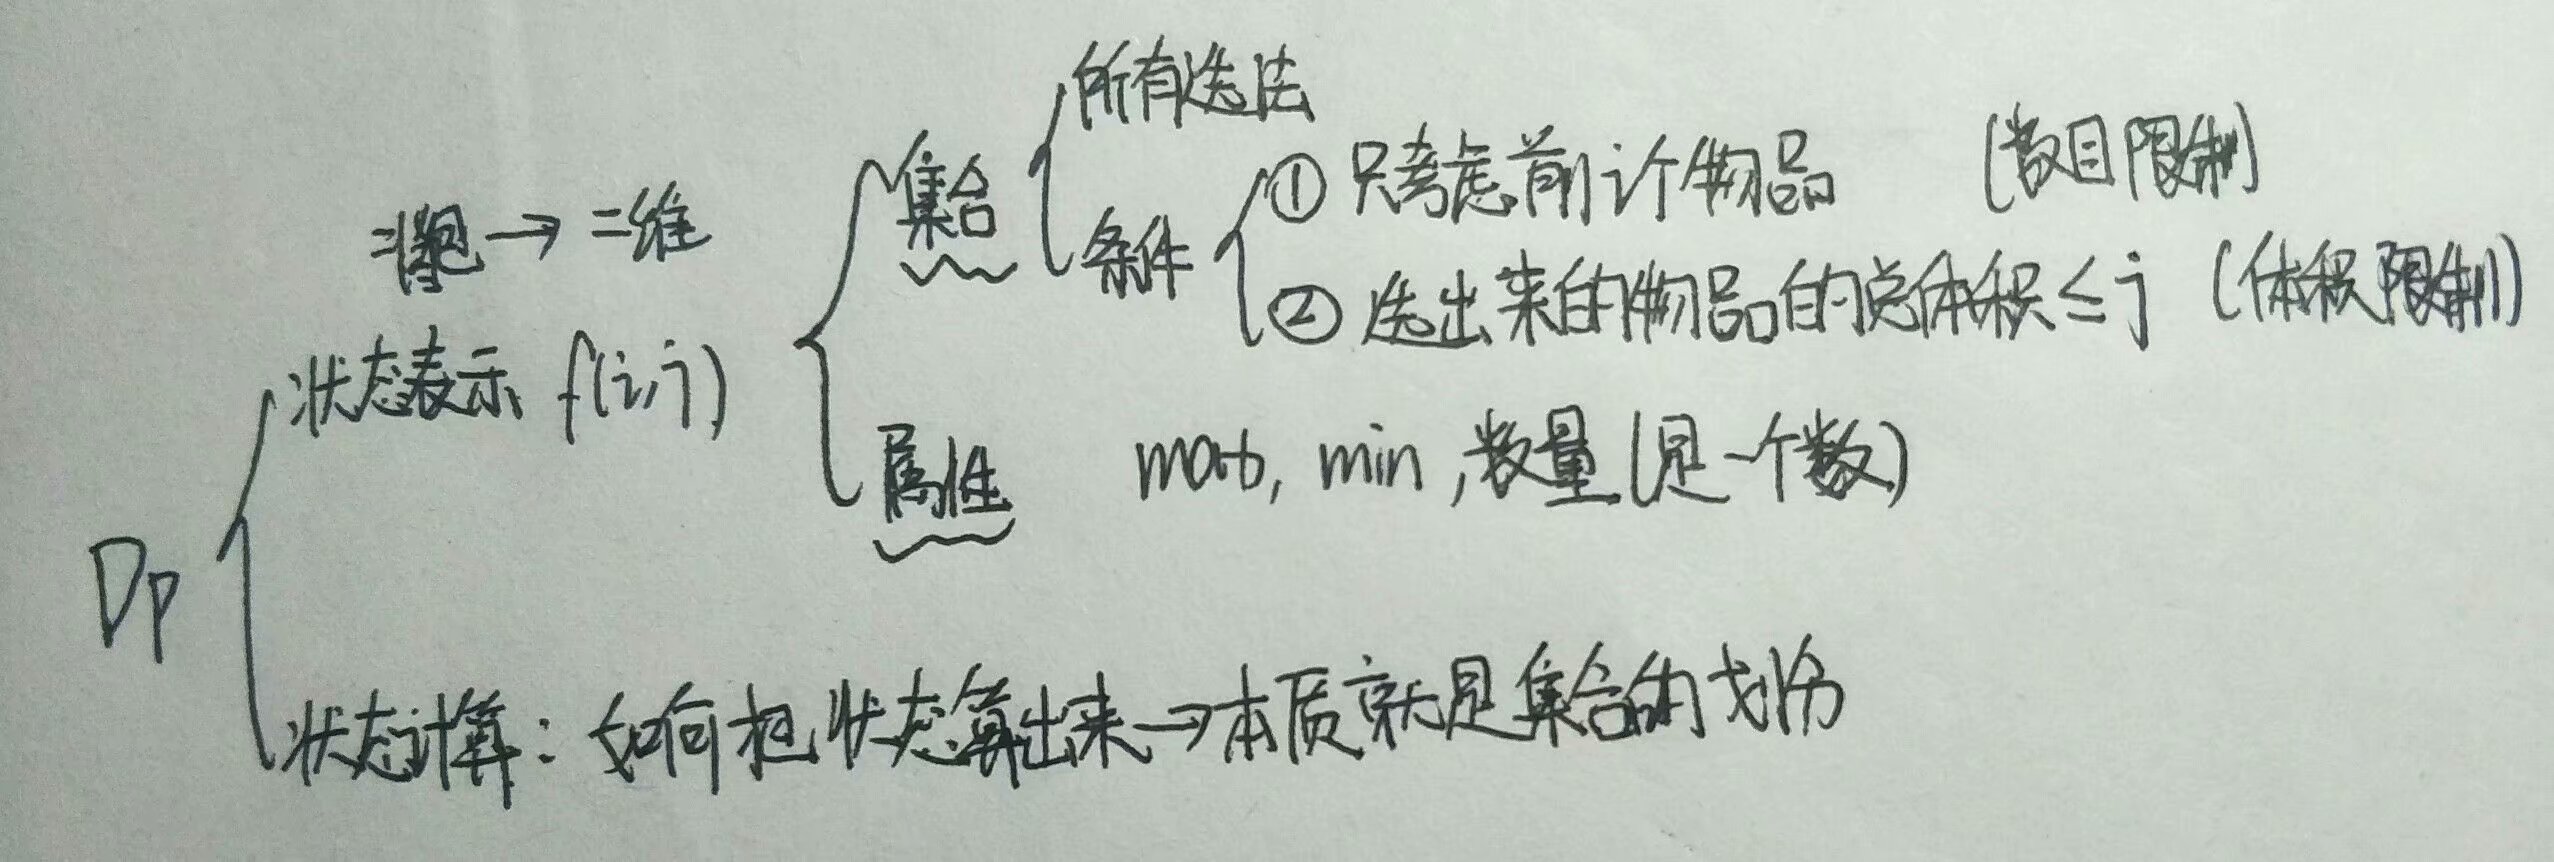 所有选法
集合
条件
① 只考虑前i个物品 (数目限制)
② 选出来的物品的总体积≤j (体积限制)
→ 二维
状态表示 f(i,j)
属性 max, min, 数量 (是一个数)
Dp
状态计算: 如何把状态算出来→本质就是集合的划分